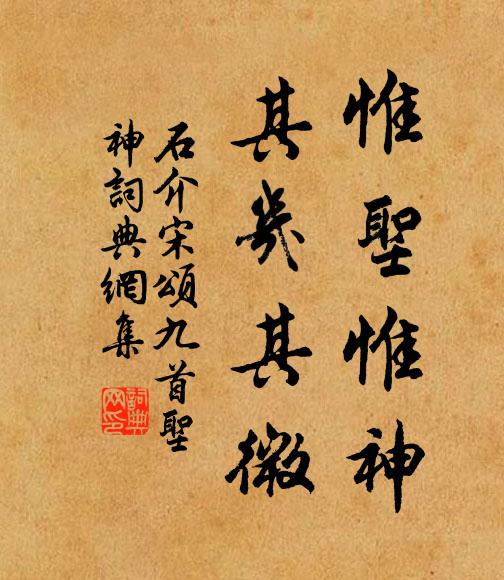 惟聖惟神
其幾其微
石介宋頌九首聖
神詞典網集
詞典网印